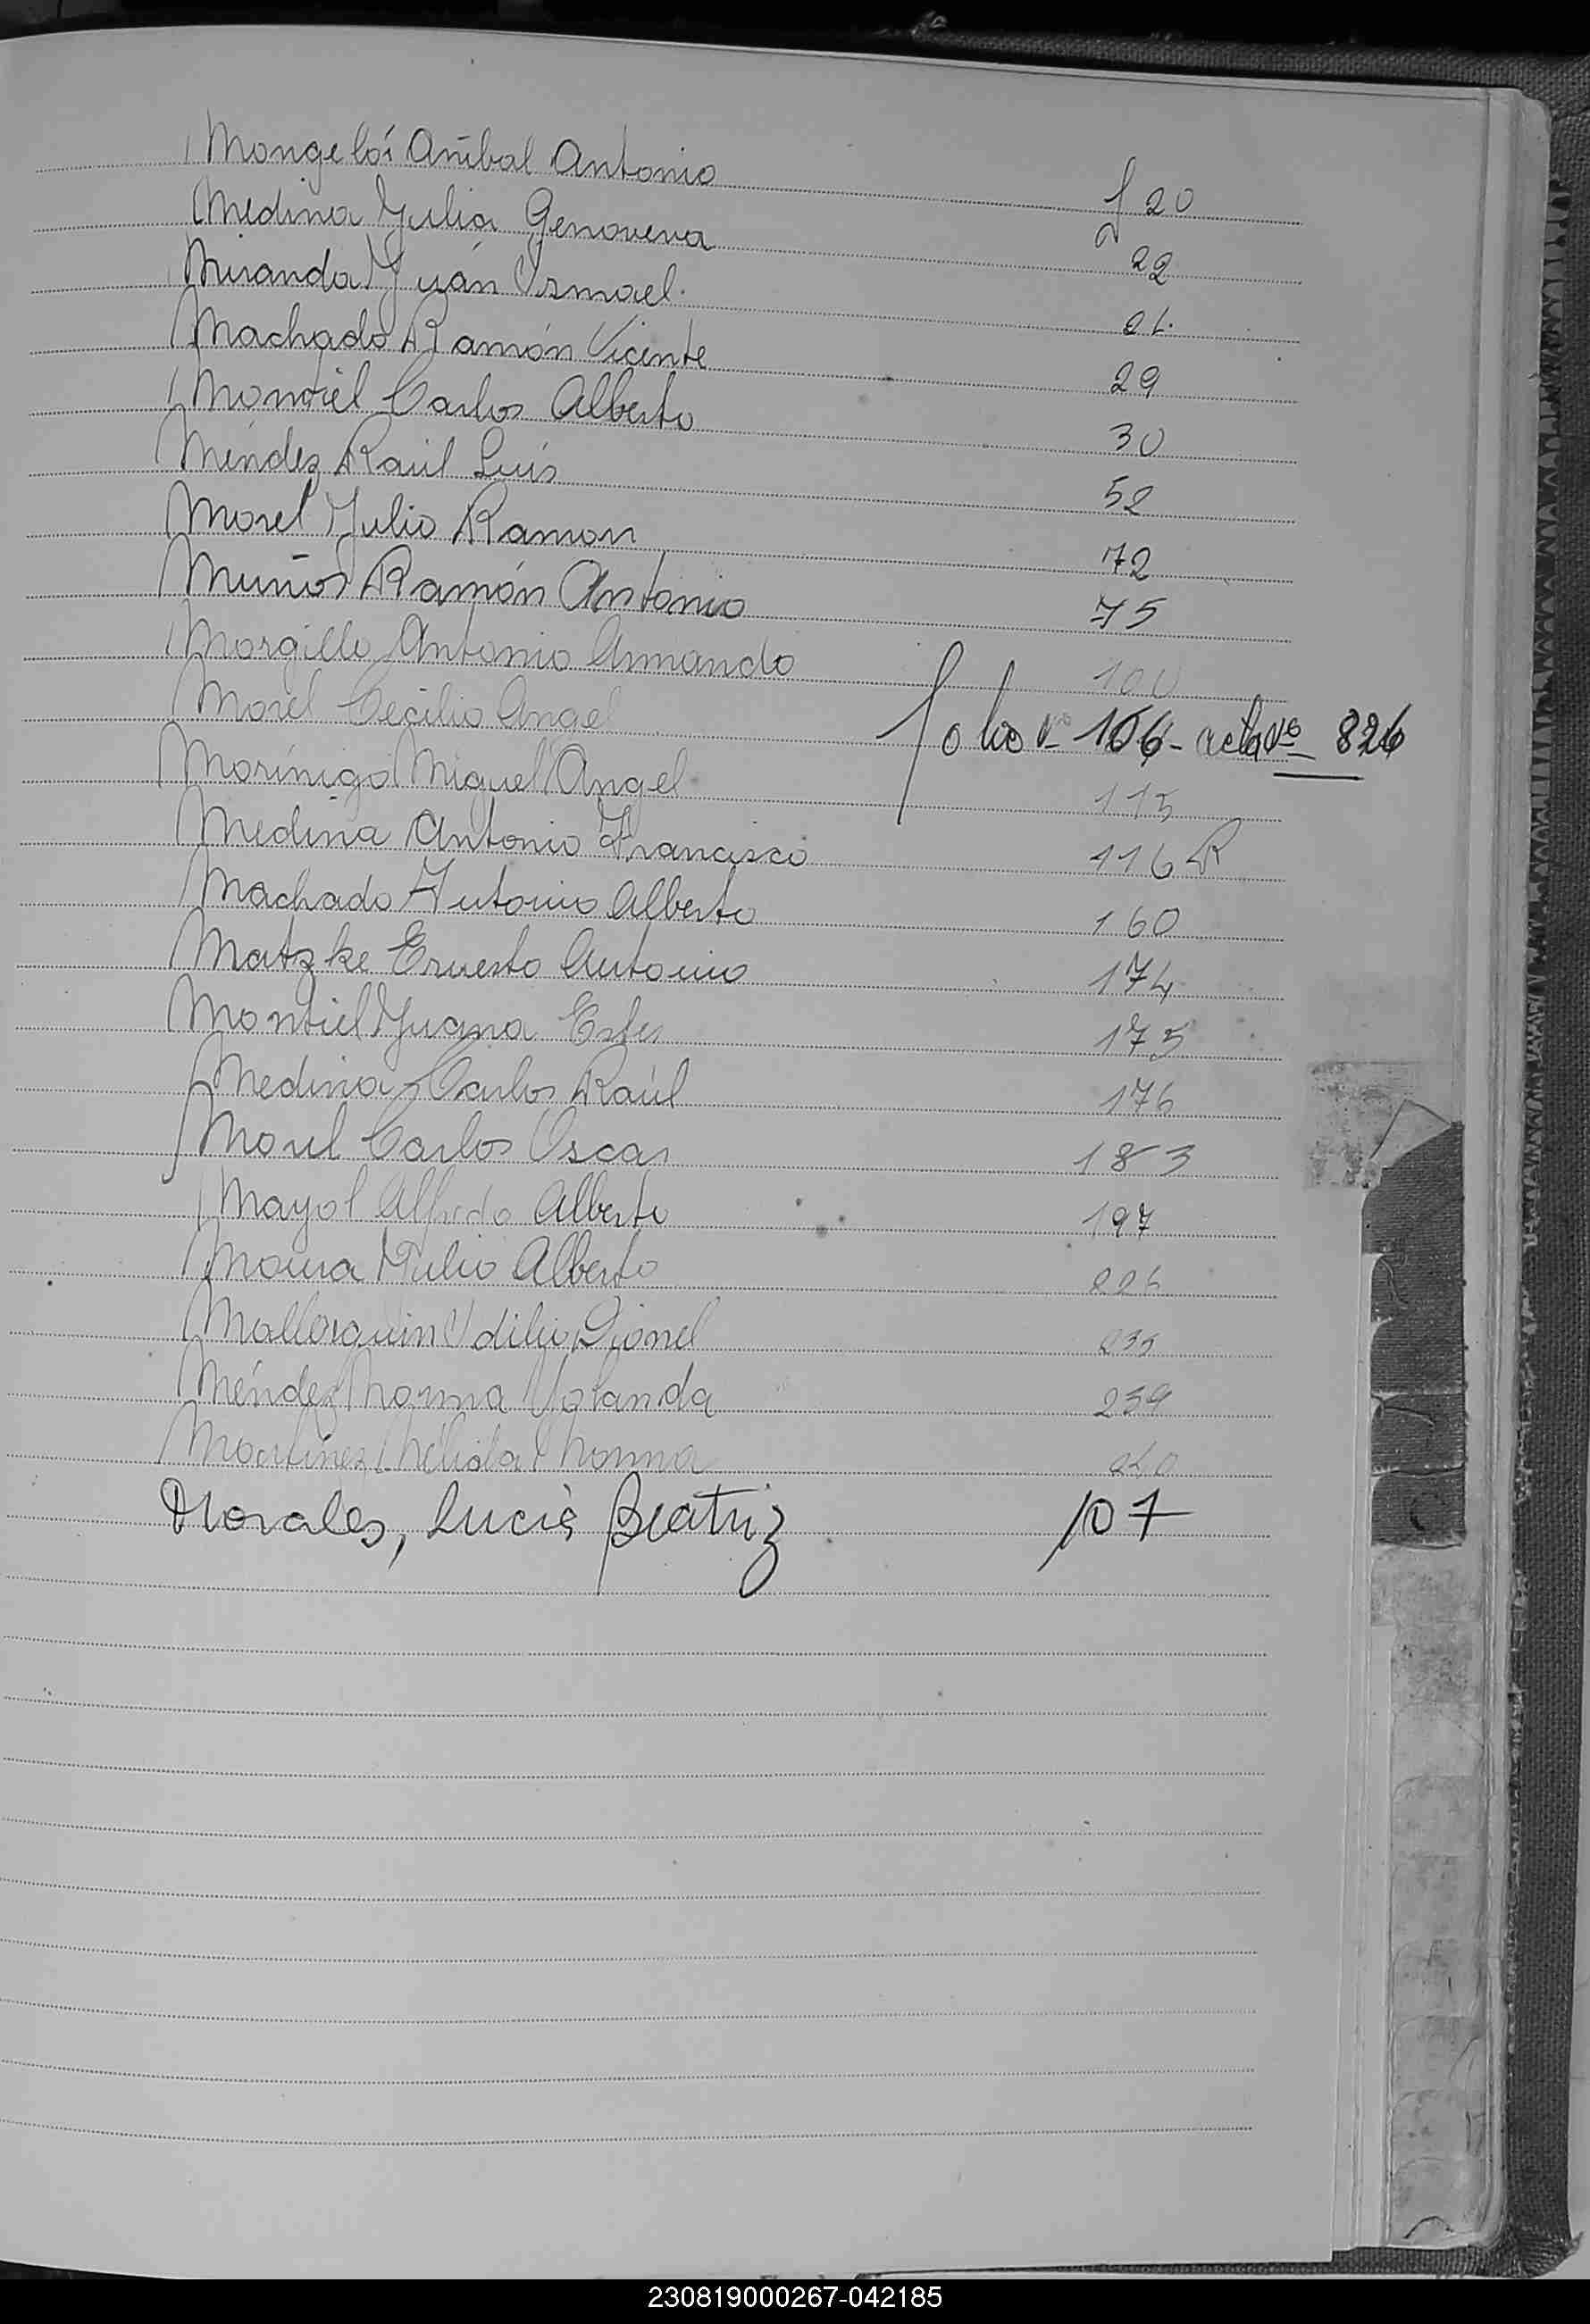 Mongelós Aníbal Antonio f 20
Medina Julia Genoveva 22
Miranda Juán Ismael. 26
Machado Ramón Vicente 29
Montiel Carlos Alberto 30
Méndez Raúl Luis 52
Morel Julio Ramon 72
Muños Ramón Antonio 75
Morgillo Antonio Armando 100
Morel Cecilio Angel folio Nº 106- acta Nº 826
Morínigo Miguel Angel 115
Medina Antonio Francisco 116 R
Machado Antonio Alberto 160
Matzke Ernesto Antonio 174
Montiel Juana Ester 175
Medina Carlos Raúl 176
Morel Carlos Oscar 183
Mayol Alfredo Alberto 197
Moura Julio Alberto 226
Mallorquin Odilio Dionel 235
Méndez Norma Yolanda 239
Martínez Nélida Norma 240
Morales, Lucía Beatriz 107
230819000267-042185